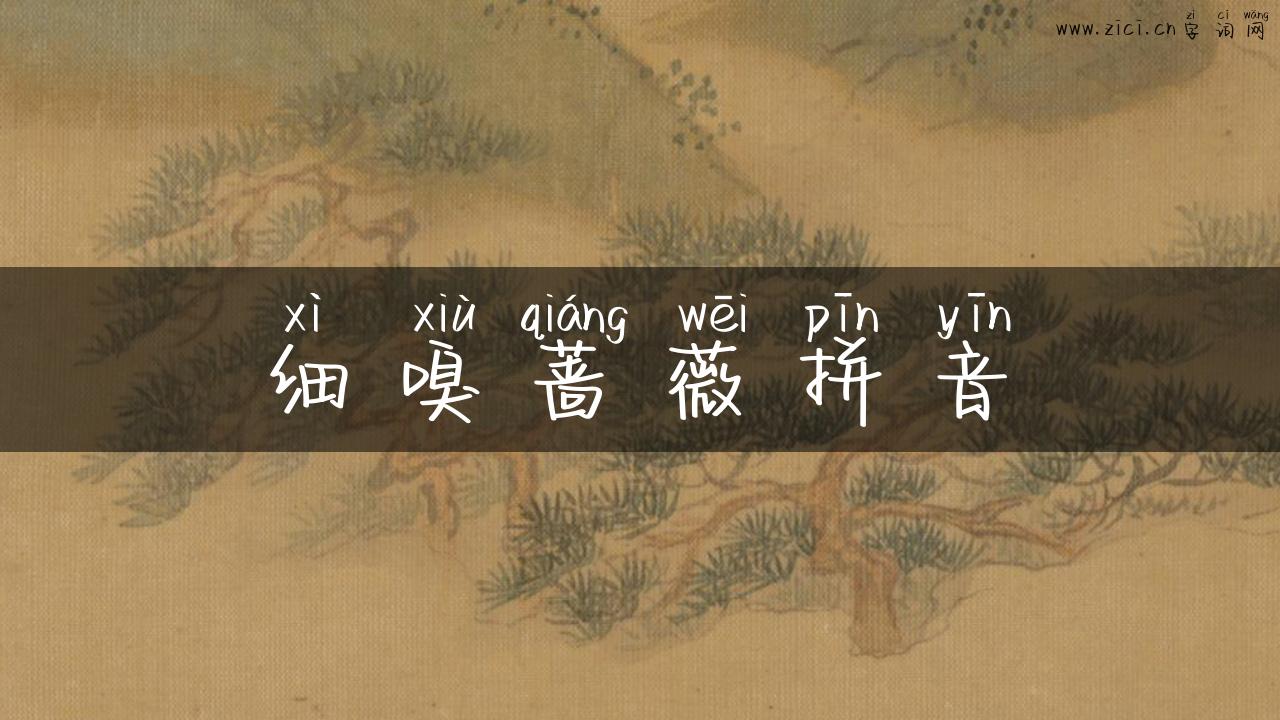 www.zici.cn zì cí wǎng
字词网
xì xiù qiáng wēi pīn yīn
细嗅蔷薇拼音